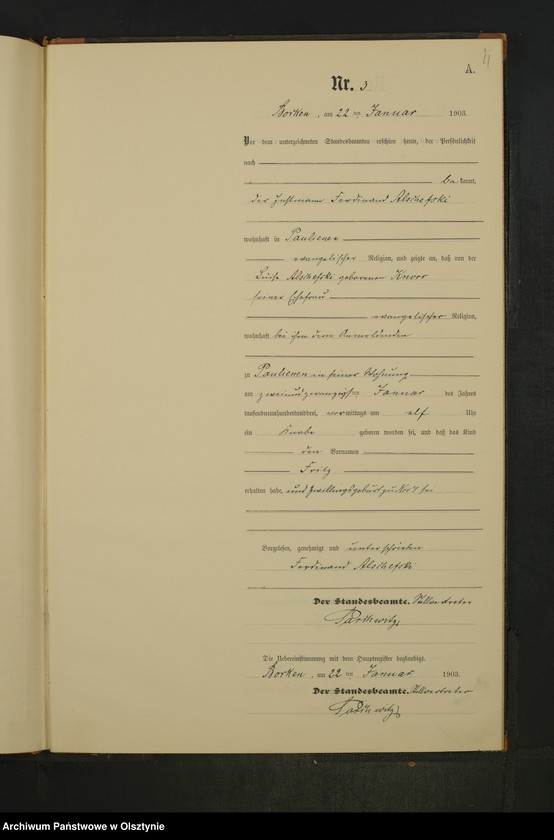 4
A.
Nr. 3
Borken, am 22 ten Januar 1903.
Vor dem unterzeichneten Standesbeamten erschien heute, der Persönlichkeit
nach
be kannt,
der Instmann Ferdinand Alschefski
wohnhaft in Paulienen
evangelischer Religion, und zeigte an, daß von der
Luise Alschefski geborenen Knorr
seiner Ehefrau
evangelischer Religion,
wohnhaft bei ihm dem Anmeldenden
zu Paulienen in seiner Wohnung
am zweiundzwanzigsten Januar des Jahres
tausendneunhundertunddrei, vormittags um elf Uhr
ein Knabe geboren worden sei, und daß das Kind
den Vornamen
Fritz
erhalten habe, und Zwillingsgeburt zu No 4 sei
Vorgelesen, genehmigt und unterschrieben
Ferdinand Alschefski
Der Standesbeamte. Stellvertreter
Die Uebereinstimmung mit dem Hauptregister beglaubigt.
Borken, am 22 ten Januar 1903.
Der Standesbeamte. Stellvertreter
Archiwum Państwowe w Olsztynie